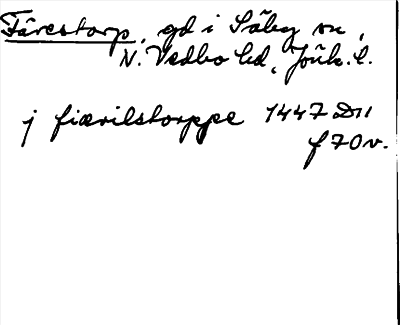 Fårestorp, gd i Säby sn,
N. Vedbo hd, Jönk. l.
j fiærilstorppe 1447 D11
f 70 v.